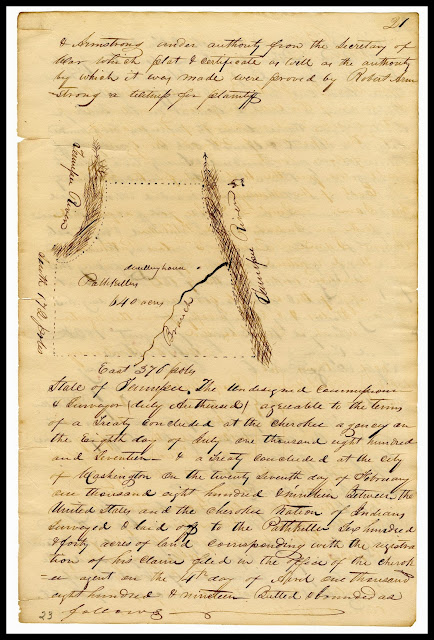 21
& Armstrong under authority from the Secretary of
War which plat & certificate as well as the authority
by which it was made were proved by Robert Arm
strong a witness for plaintiff
Tennessee River
Tennessee River
dwelling house
Pathkillers
640 acres
Branch
East 370 poles
State of Tennessee. The undersigned Commissioner
& Surveyor (duly Authorised) agreeable to the terms
of a Treaty concluded at the Cherokee agency on
the Eighth day of July one thousand eight hundred
and Seventeen & a Treaty concluded at the City
of Washington on the twenty Seventh day of February
one thousand eight hundred & nineteen between the
United States and the Cherokee Nation of Indians
Surveyed & laid off to the Pathkiller Six hundred
& forty acres of land corresponding with the registra
tion of his claim filed in the office of the Cherok
=ee agent on the 4th day of April one thousand
eight hundred & nineteen Butted & bounded as
follows
23